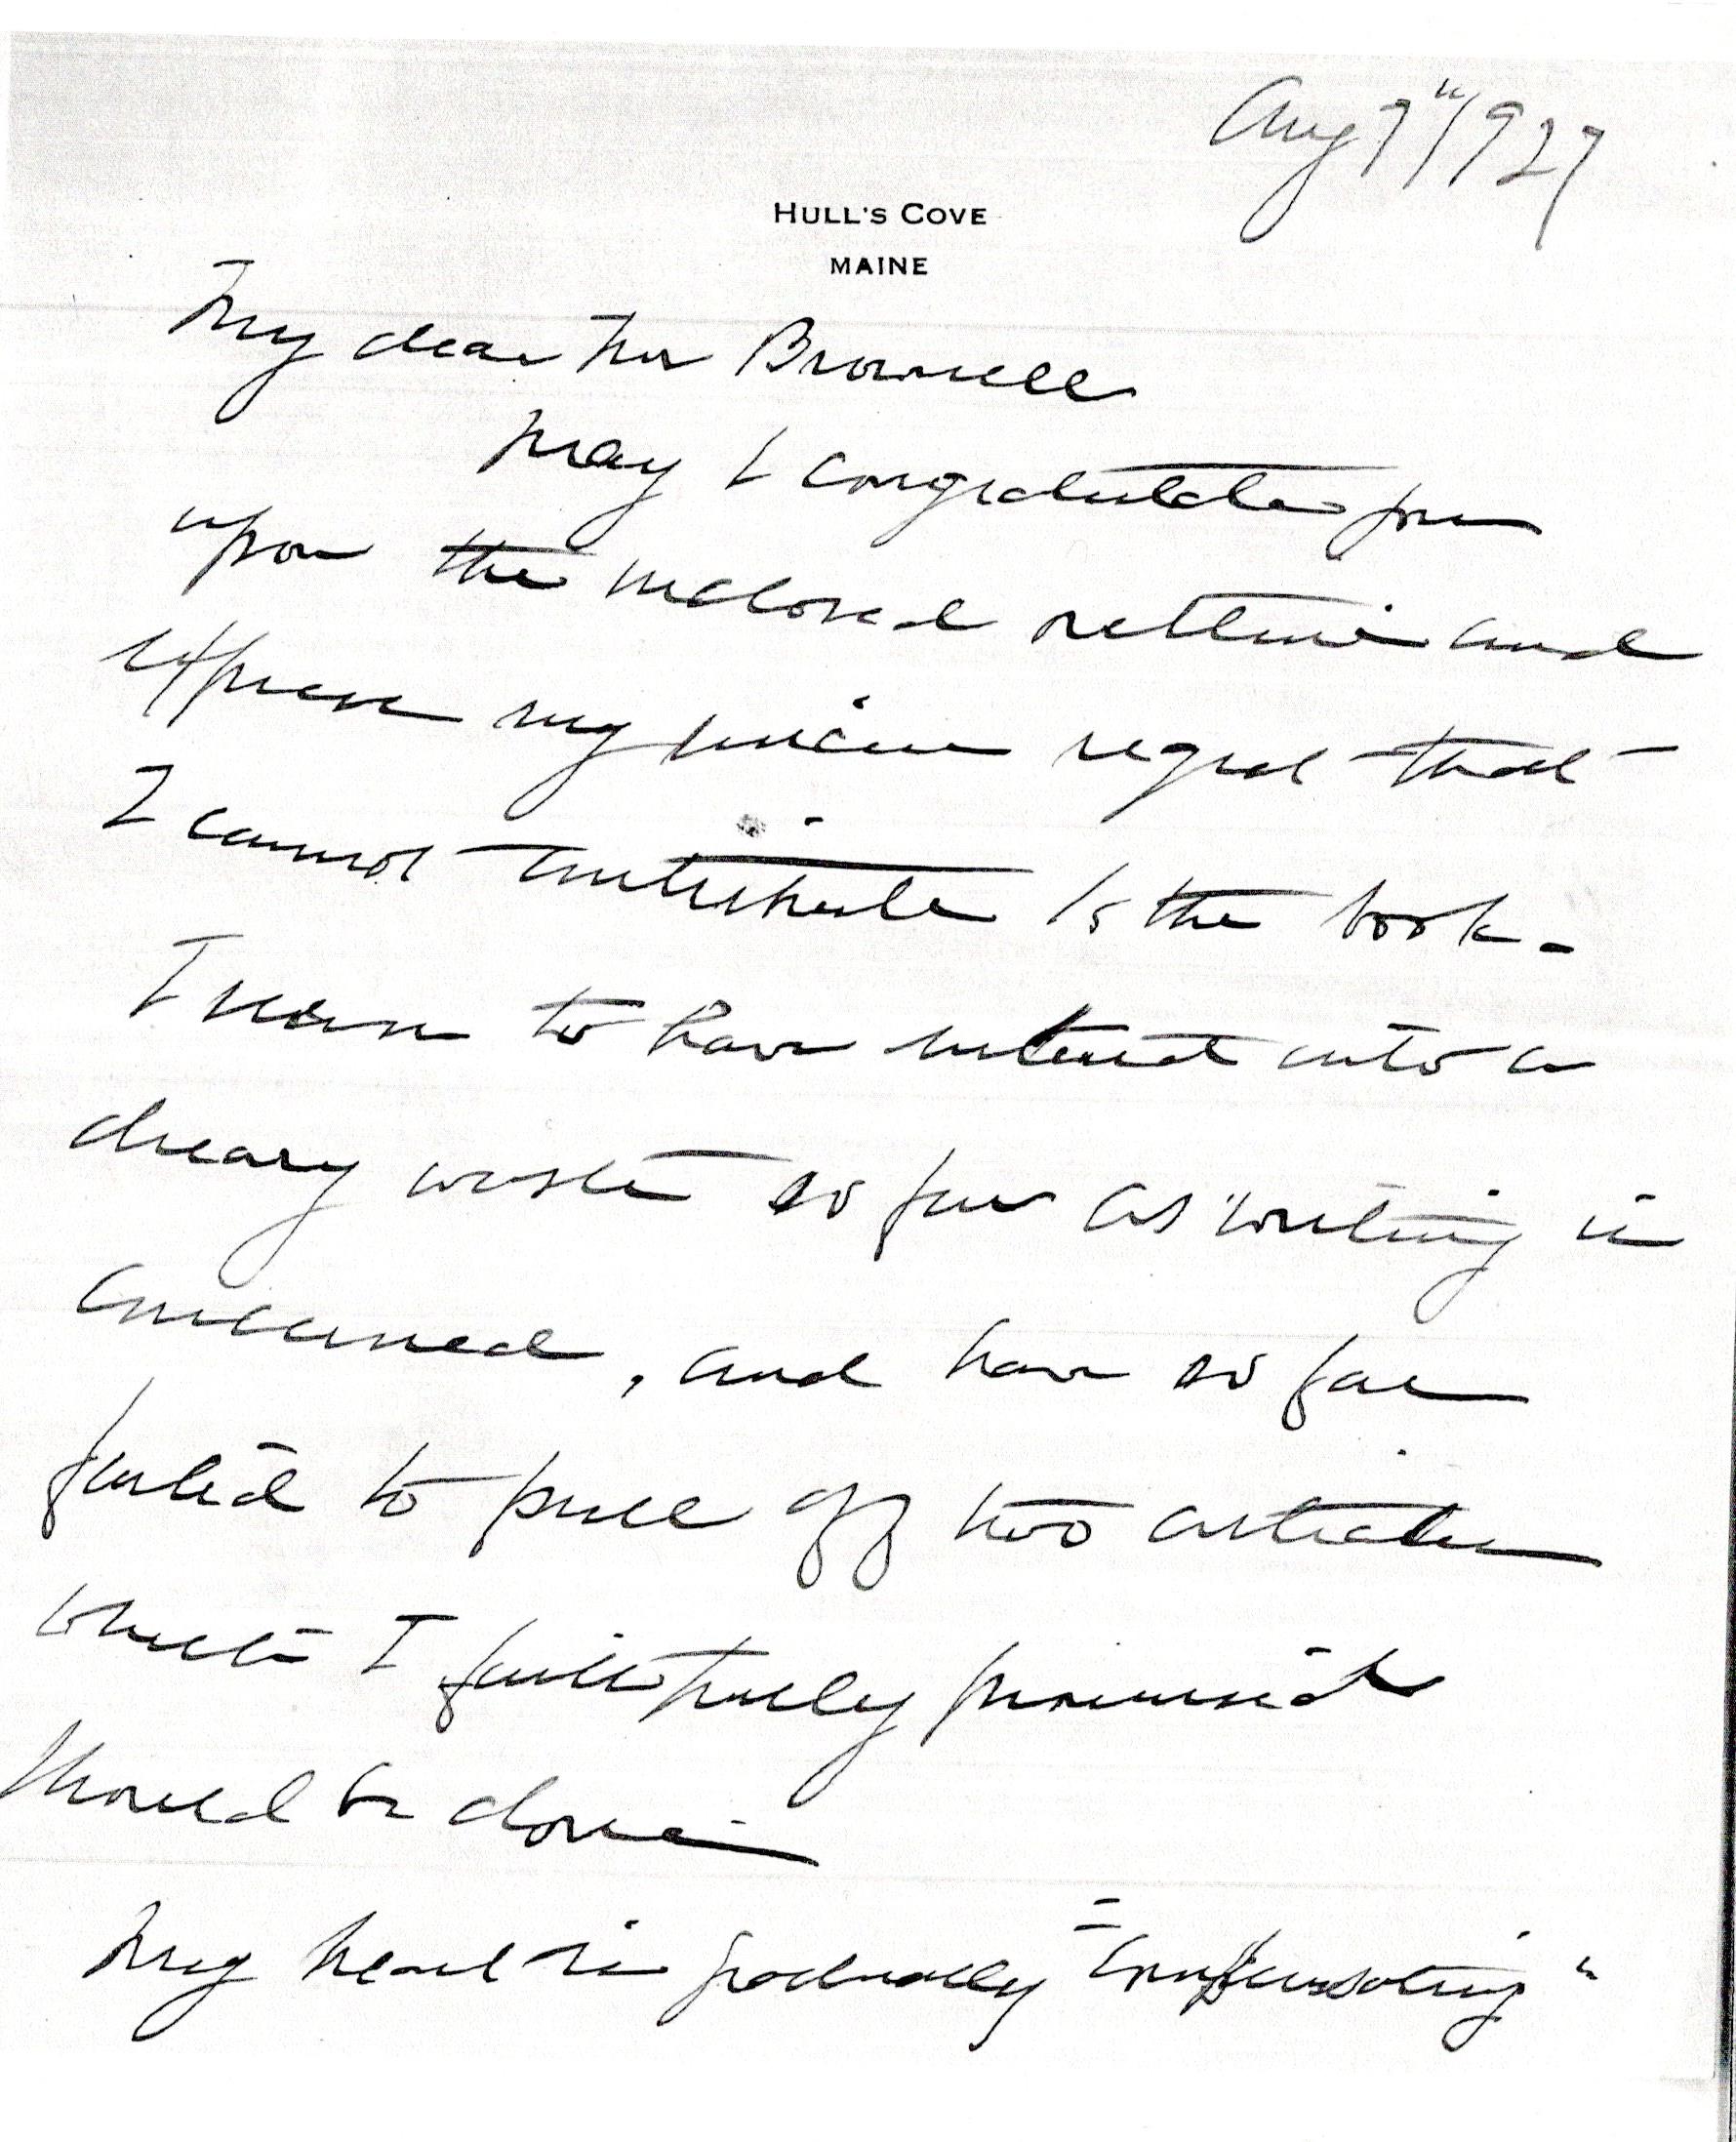 Aug 7" 1927
HULL'S COVE
MAINE
My dear Mr Brownell
May I congratulate you
upon the inclosed and
express my sincere regret that
I cannot contribute to the book.
I seem to have entered into a
dreary waste so far as writing is
concerned, and have so far
failed to pull off two articles
which I faithfully promised
should be done.
My heart is gradually